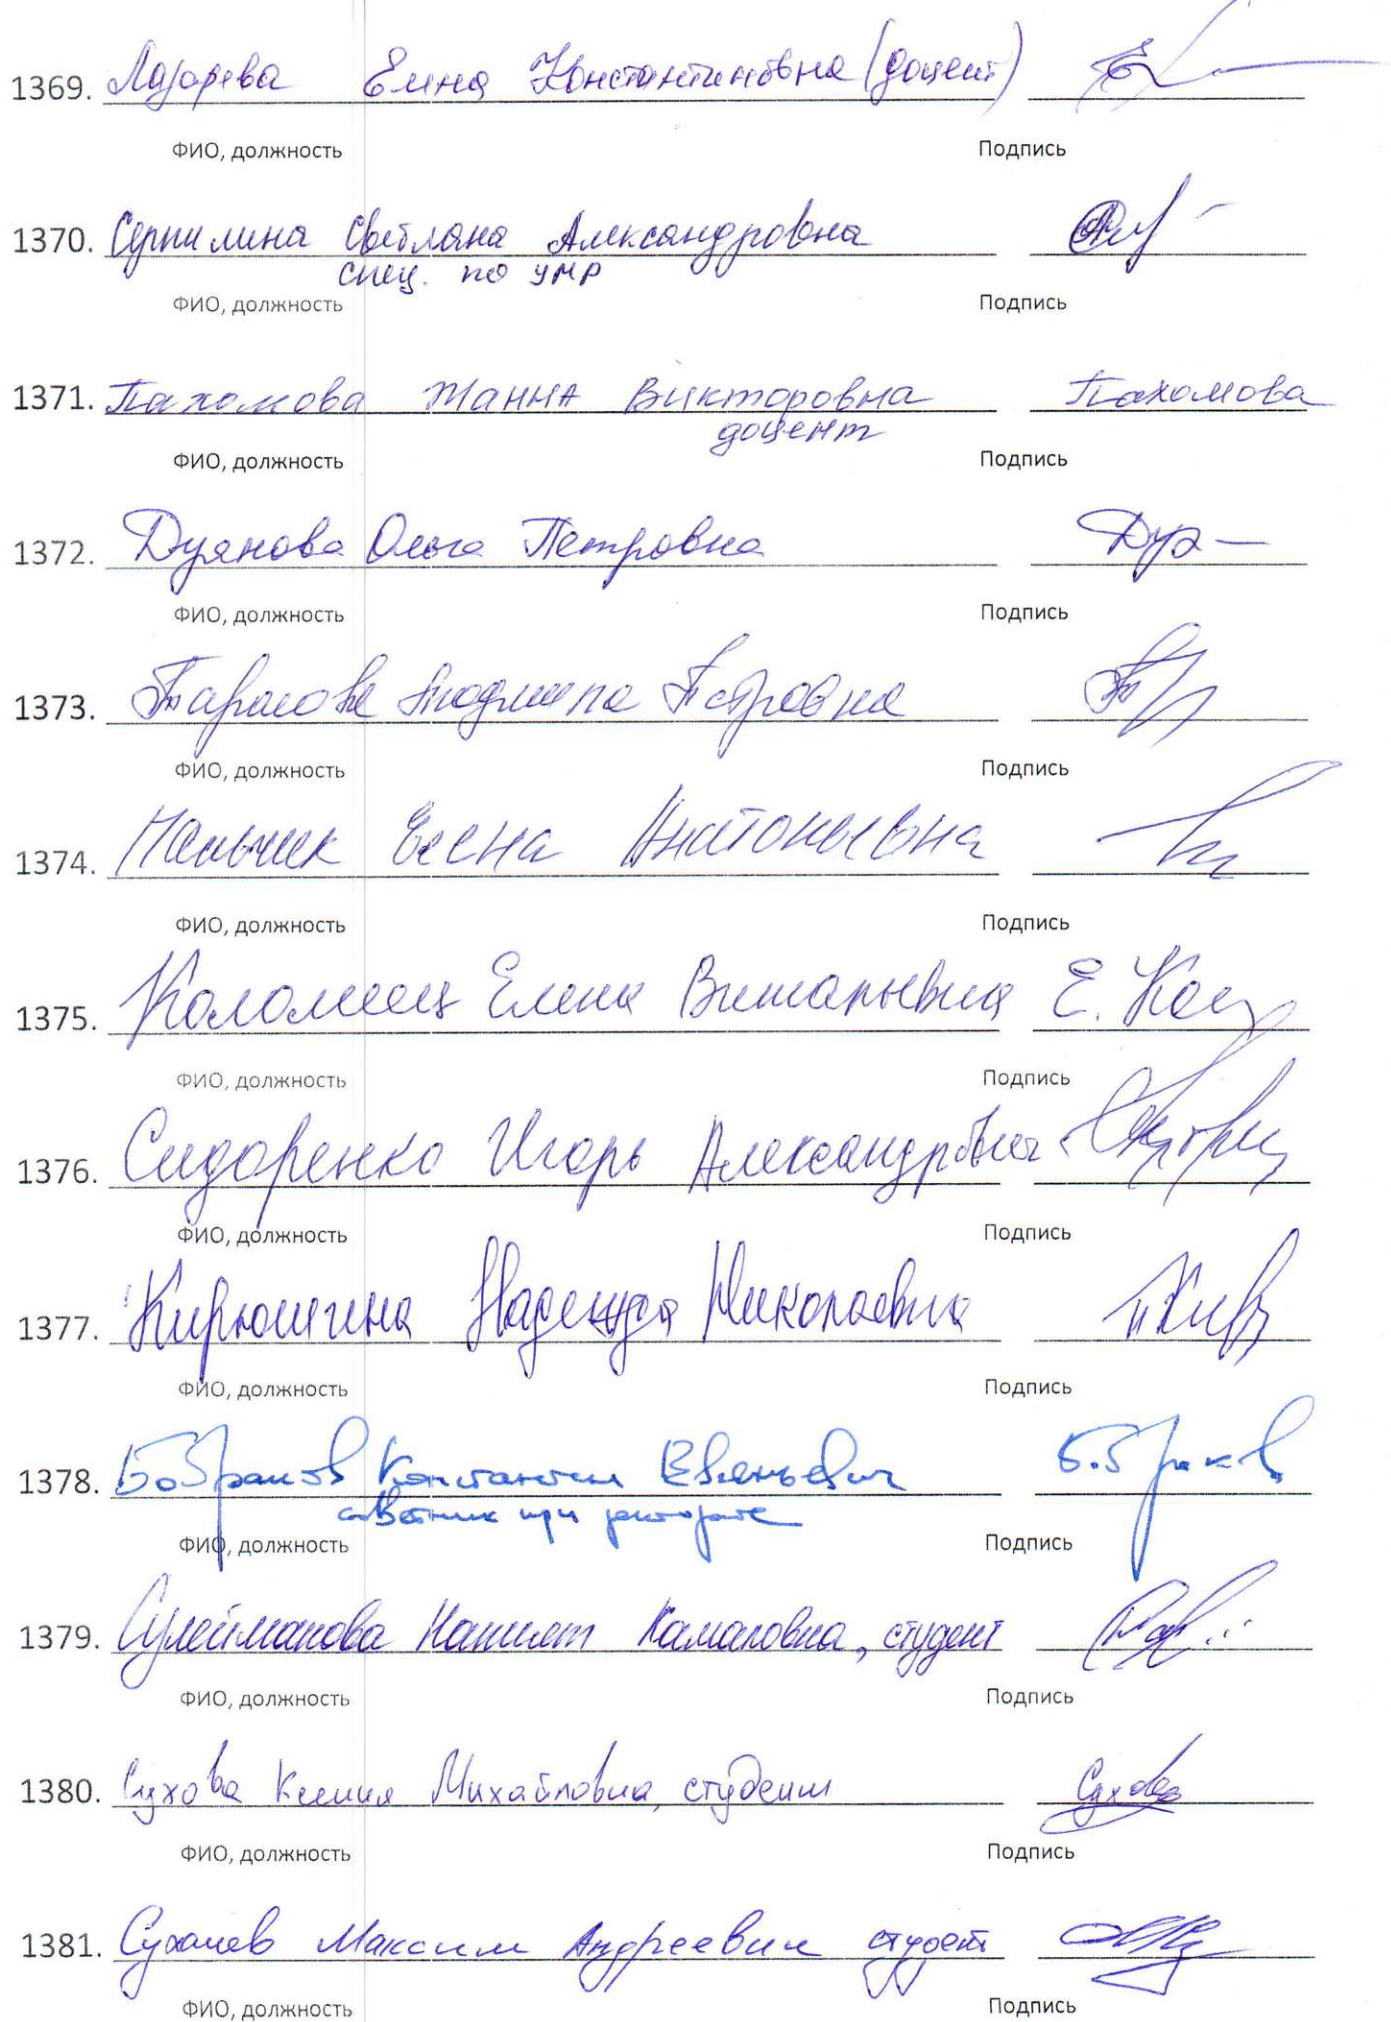 1369. Лазарева Елена Константиновна (доцент)
ФИО, должность Подпись
1370. Серпилина Светлана Александровна
спец. по УМР
ФИО, должность Подпись
1371. Пахомова Жанна Викторовна Пахомова
доцент
ФИО, должность Подпись
1372. Дуянова Ольга Петровна Дуя
ФИО, должность Подпись
1373. Тарасова Людмила Петровна
ФИО, должность Подпись
1374. Елена Анатольевна
ФИО, должность Подпись
1375. Коломеец Елена Витальевна Е. Кол
ФИО, должность Подпись
1376. Сидоренко Игорь Александрович
ФИО, должность Подпись
1377. Кирюшина Надежда Николаевна
ФИО, должность Подпись
1378. Константин Евгеньевич
советник при ректорате
ФИО, должность Подпись
1379. Сулейманова Камаловна, студент
ФИО, должность Подпись
1380. Сухова Ксения Михайловна, студент Сухова
ФИО, должность Подпись
1381. Максим Андреевич студент
ФИО, должность Подпись